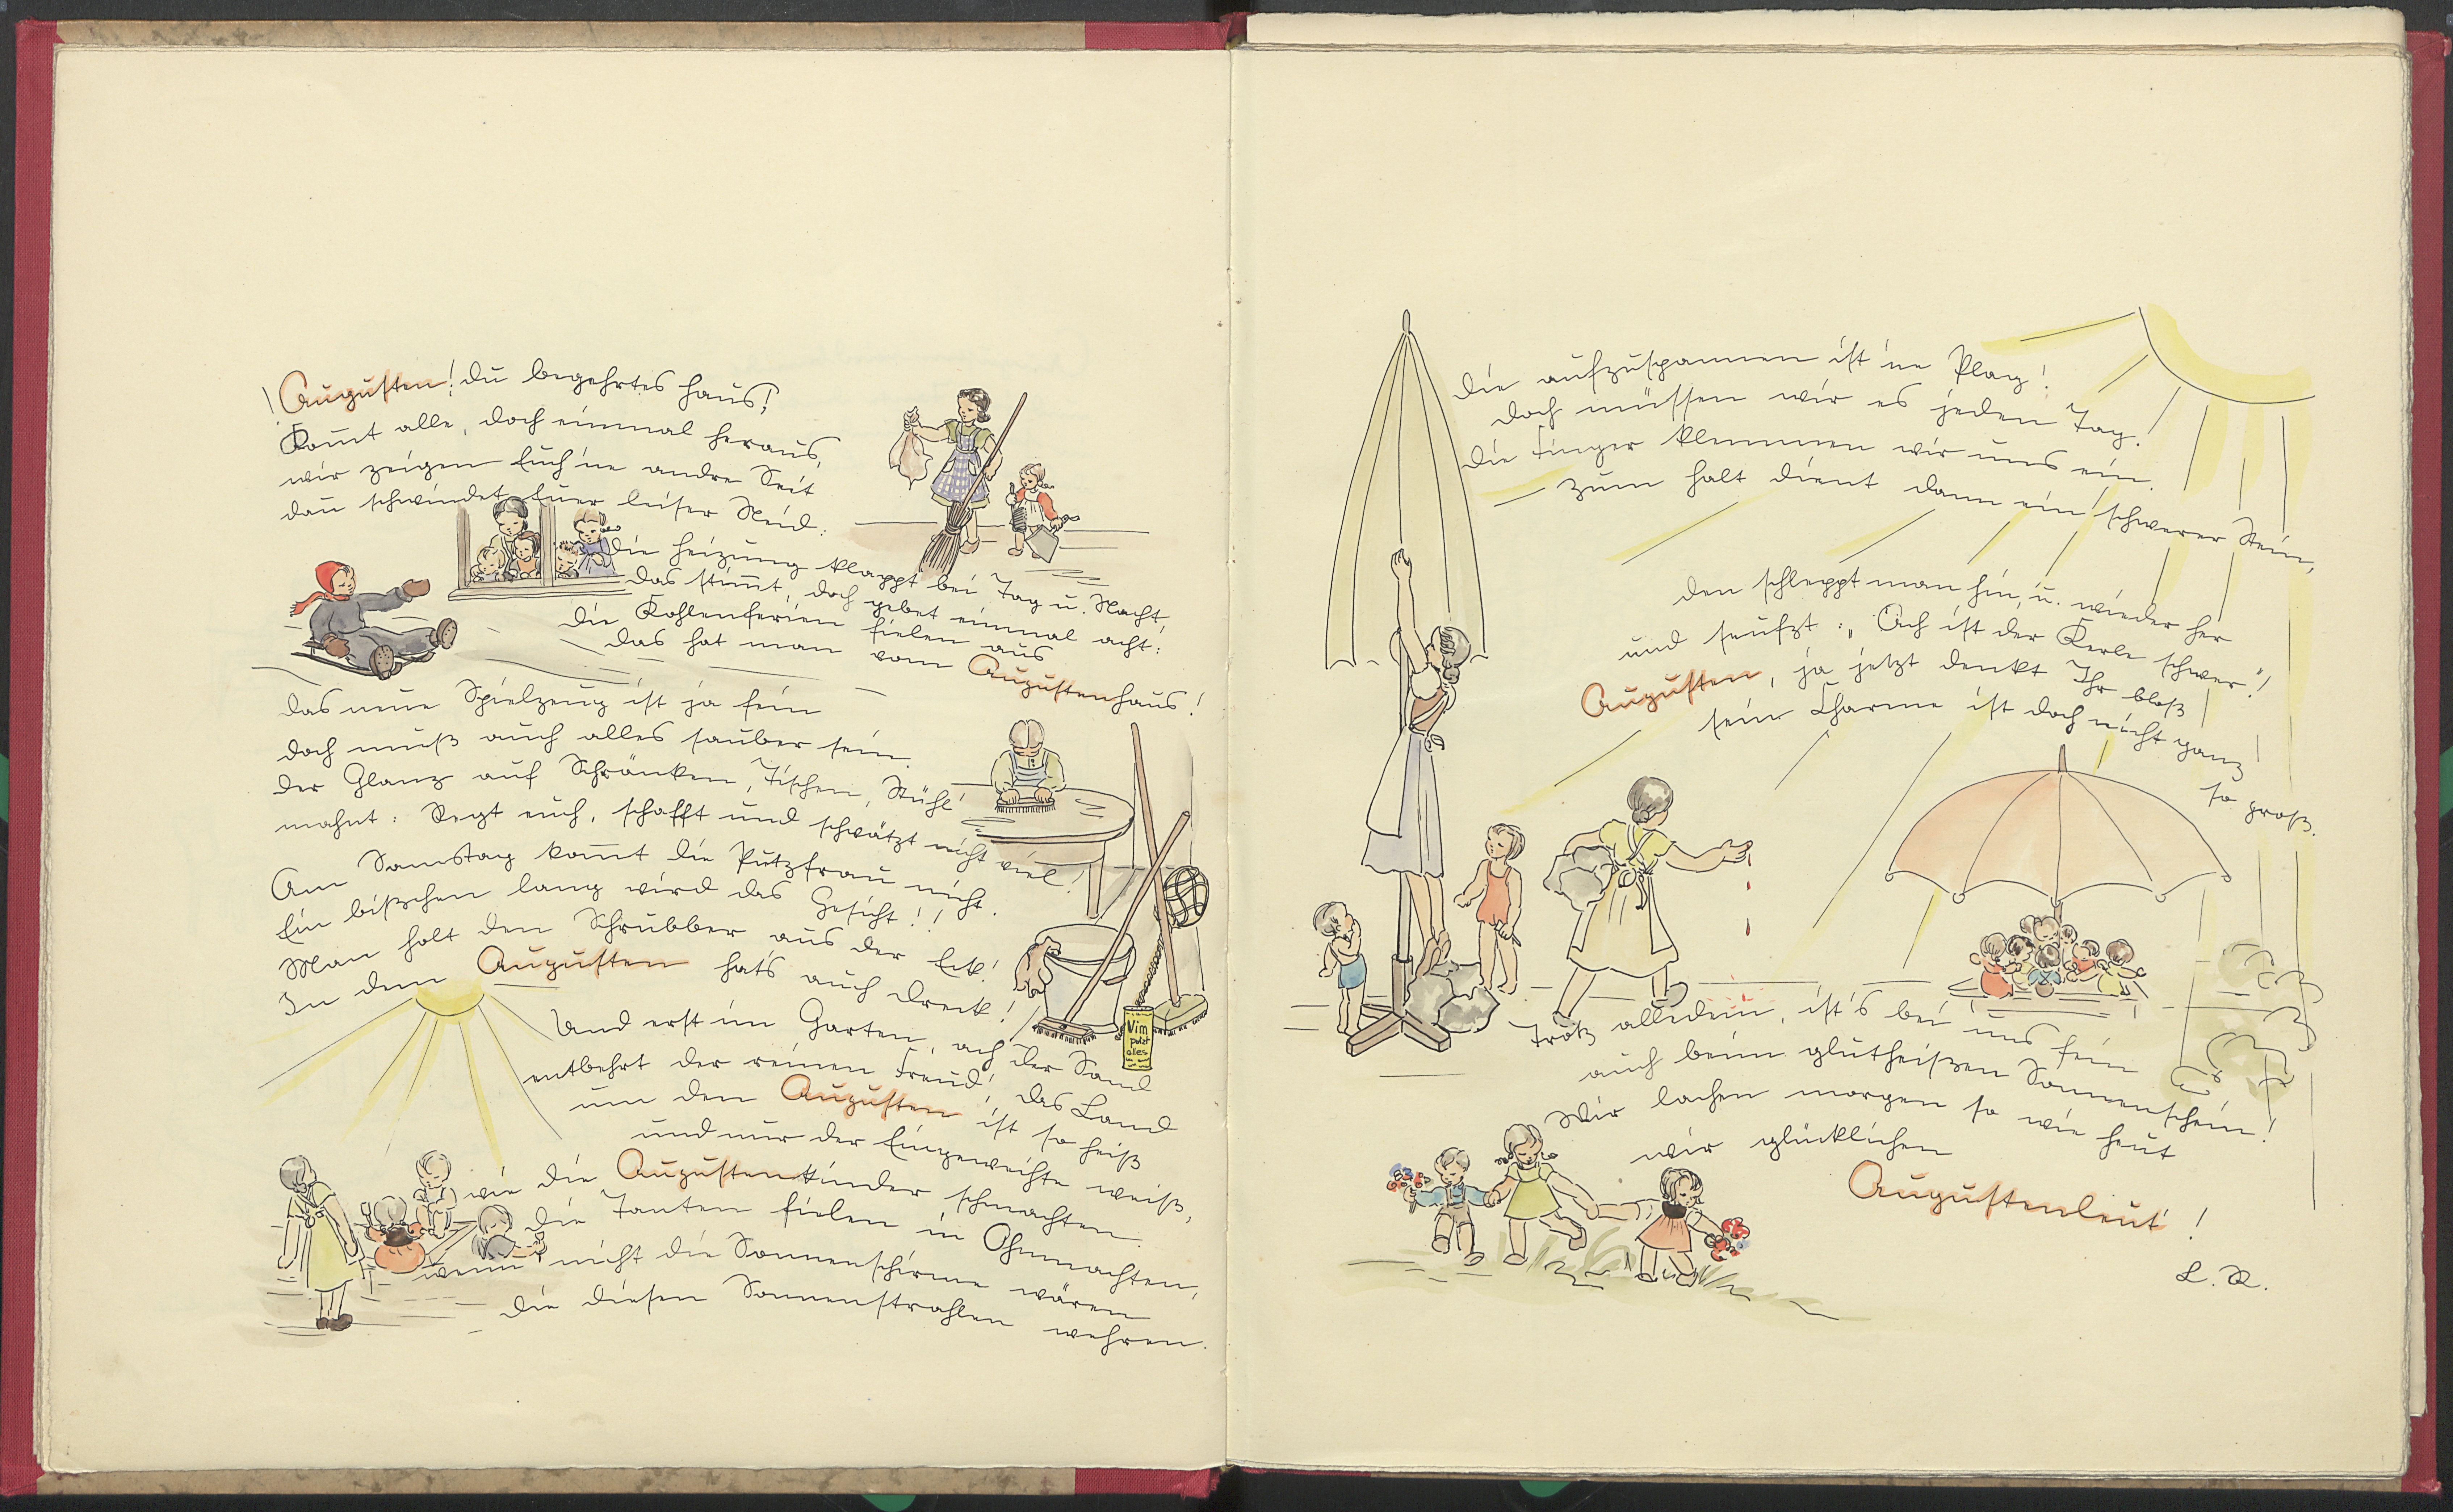 Augusten! du begehrtes Haus!
Kom̅t alle, doch einmal heraus,
wir zeigen Euch 'ne andre Seit
dan̅ schwindet Euer leiser Neid:
Die Heizung klappt bei Tag u. Nacht,
das stim̅t, doch gebet einmal acht:
die Kohlenferien fielen aus
das hat man vom Augustenhaus!
Das neue Spielzeug ist ja fein
doch muß auch alles sauber sein.
Der Glanz auf Schränken, Tischen, Stühl'
mahnt: Regt euch, schafft und schwätzt nicht viel!
Am Samstag kom̅t die Putzfrau nicht.
Ein bißchen lang wird das Gesicht!!
Man holt den Schrubber aus der Eck!
In dem Augusten hat's auch Dreck!
Vim
putzt
alles
Und erst im Garten, ach der Sand
entbehrt der reinen Freud'! Das Land
um den Augusten ist so heiß
und nur der Eingeweihte weiß,
wie die Augustenkinder schmachten.
Die Tanten fielen in Ohnmachten,
wenn nicht die Sonnenschirme wären
die diesen Sonnenstrahlen wehren.
Die aufzuspannen ist 'ne Plag'!
doch müssen wir es jeden Tag.
Die Finger klemmen wir uns ein.
zum Halt dient dann ein schwerer Stein,
den schleppt man hin, u. wieder her
und seufzt: „Ach ist der Kerle schwer"!
Augusten, ja jetzt denkt Ihr bloß
sein Charme ist doch nicht ganz
so groß.
Trotz alledem, ist's bei uns fein
auch beim glutheißen Sonnenschein!
Wir lachen morgen so wie heut
wir glücklichen
Augustenleut!
L. R.